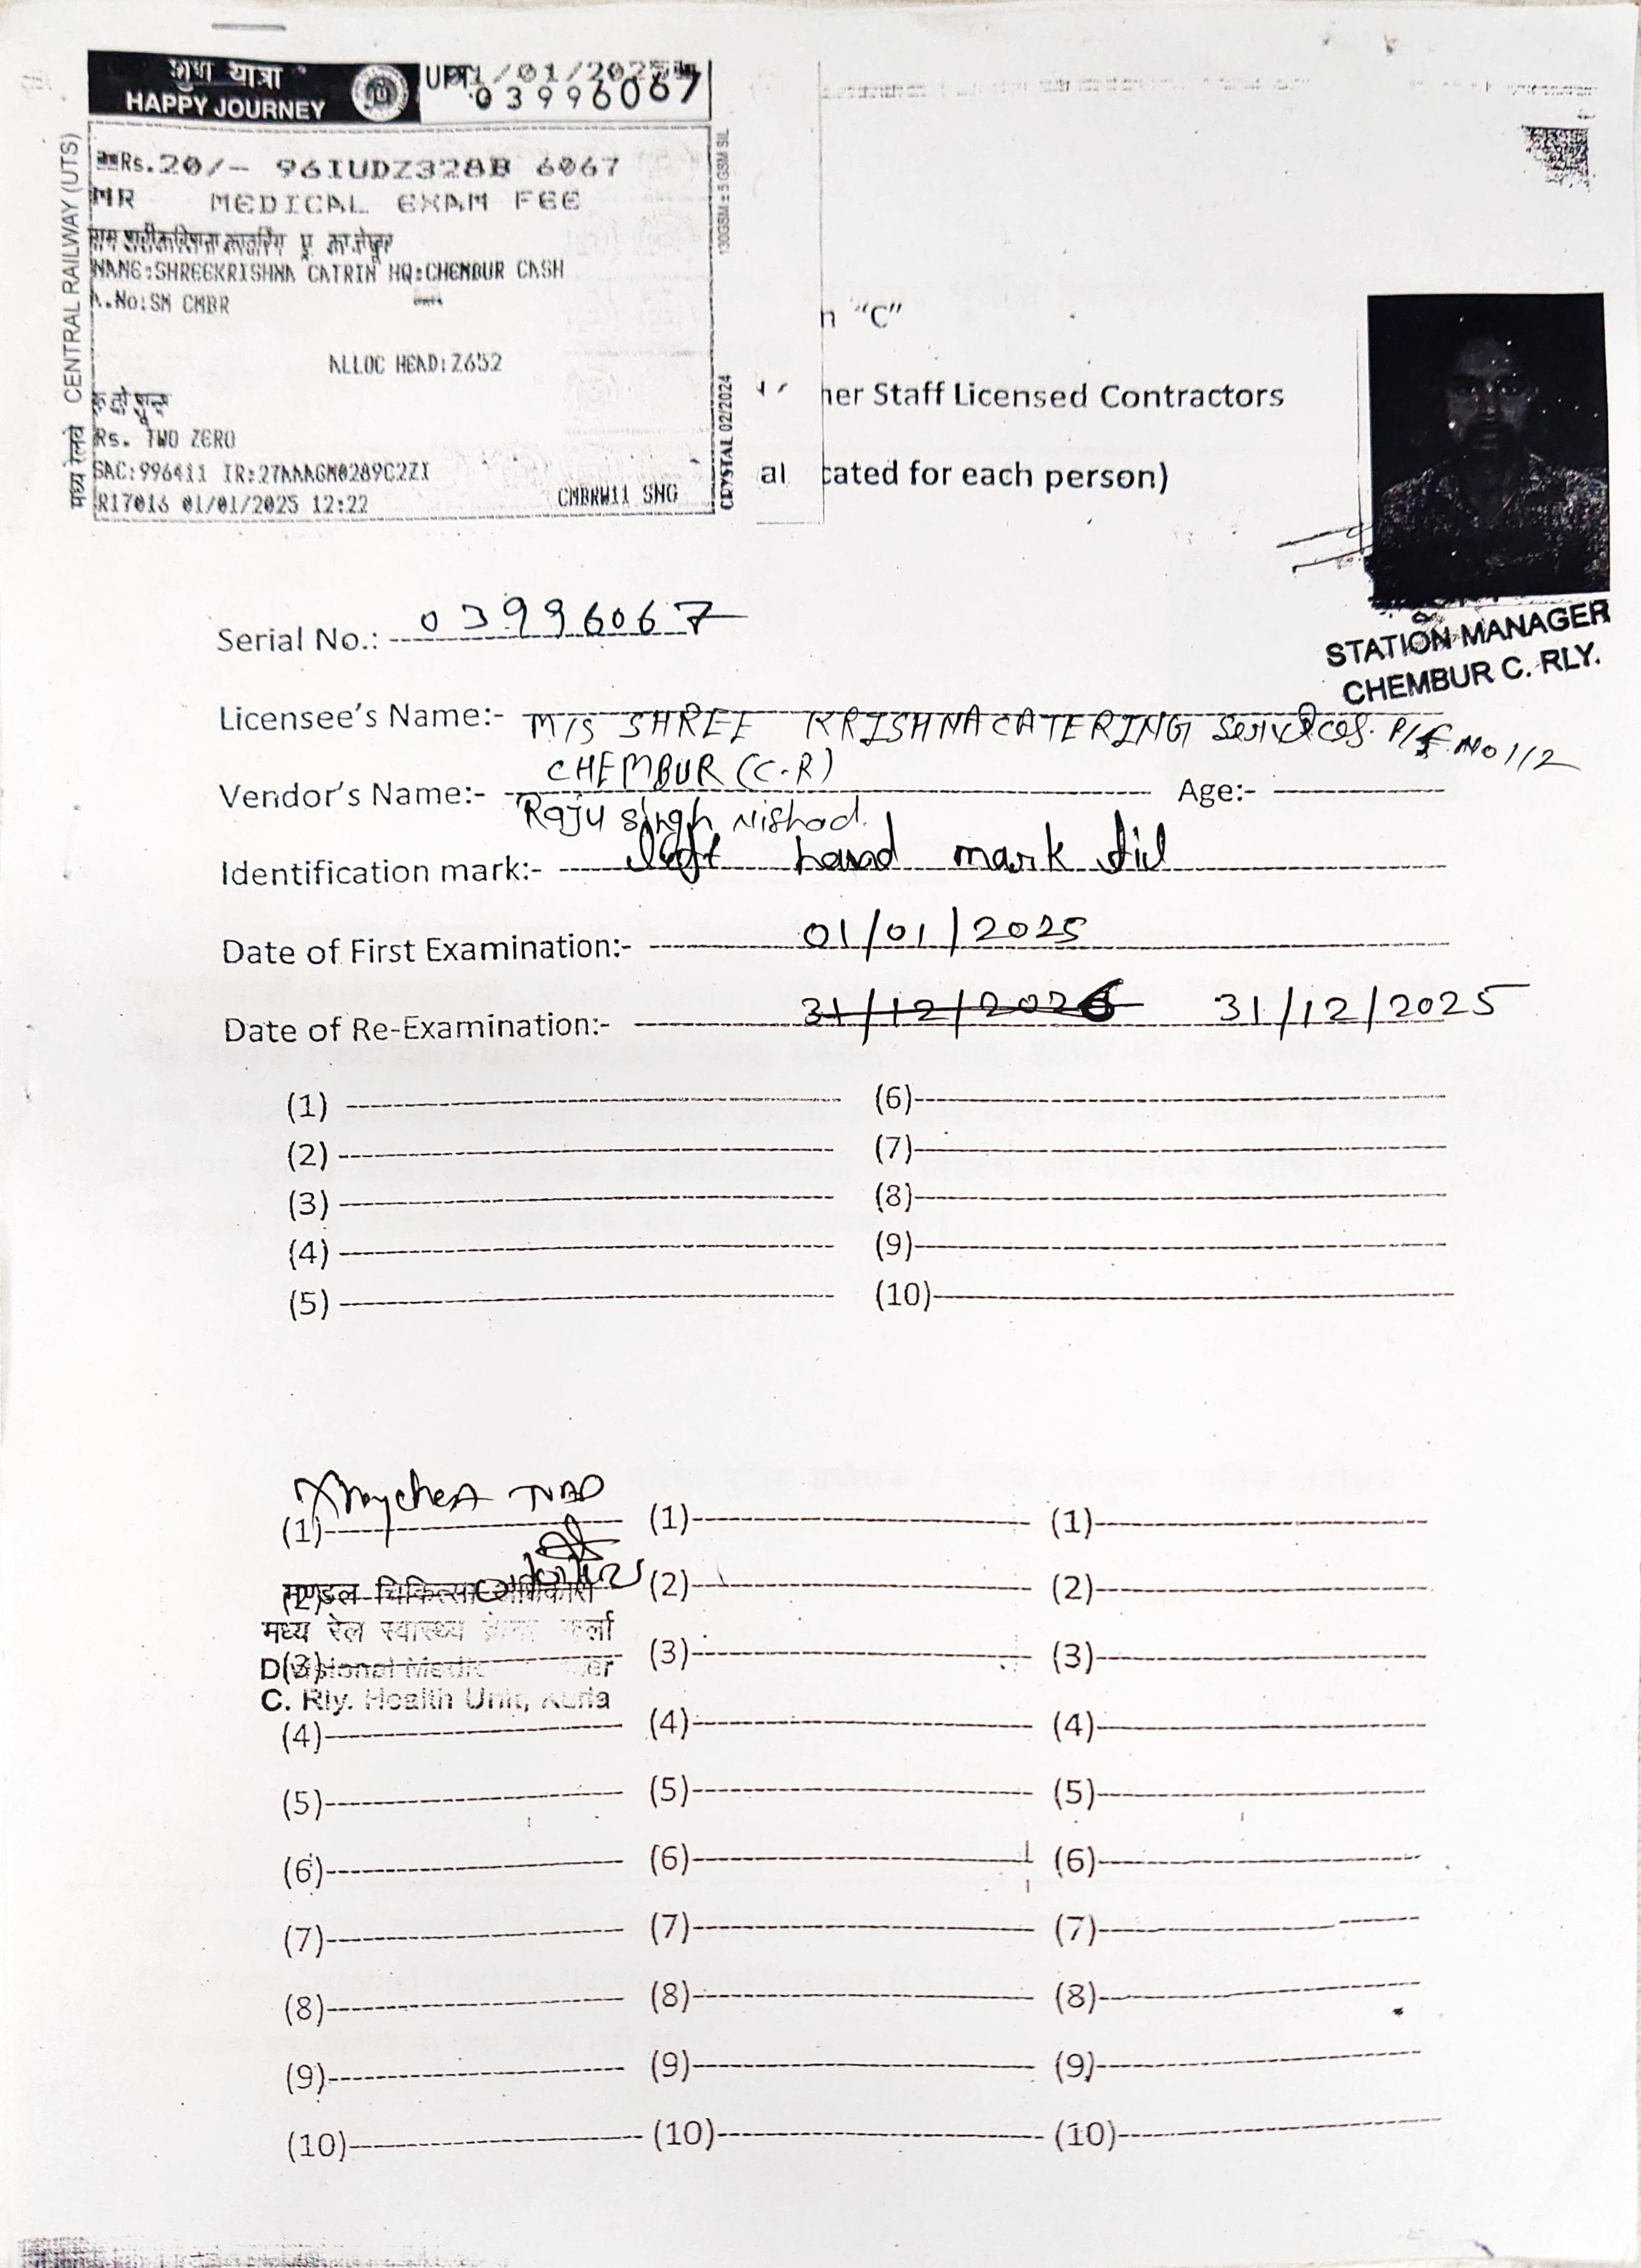 शुभ यात्रा
HAPPY JOURNEY
03996067
मध्य रेलवे CENTRAL RAILWAY (UTS)
Rs.20/- 96IUDZ328B 6067
MR MEDICAL EXAM FEE
NAME:SHREEKRISHNA CATRIN HQ:CHEMBUR CASH
A.No:SM CMBR
ALLOC HEAD:Z652
Rs. TWO ZERO
SAC:996411 IR:27AAAGM0289C2ZI
R17016 01/01/2025 12:22 CMBRW11 SNG
130GSM ± 5 GSM SIL
CRYSTAL 02/2024
"C"
her Staff Licensed Contractors
cated for each person)
STATION MANAGER
CHEMBUR C. RLY.
Serial No.: 03996067
Licensee's Name:- M/S SHREE KRISHNA CATERING Services. P/F No 1/2
CHEMBUR (C.R)
Vendor's Name:- Raju Singh Nishad. Age:-
Identification mark:- left hand mark til
Date of First Examination:- 01/01/2025
Date of Re-Examination:- 31/12/2026 31/12/2025
(1) (6)
(2) (7)
(3) (8)
(4) (9)
(5) (10)
(1) (1) (1)
(2) (2) (2)
मण्डल चिकित्सा अधिकारी
मध्य रेल स्वास्थ्य
(3) (3) (3)
Divisional Medical Officer
C. Rly. Health Unit, Kurla
(4) (4) (4)
(5) (5) (5)
(6) (6) (6)
(7) (7) (7)
(8) (8) (8)
(9) (9) (9)
(10) (10) (10)